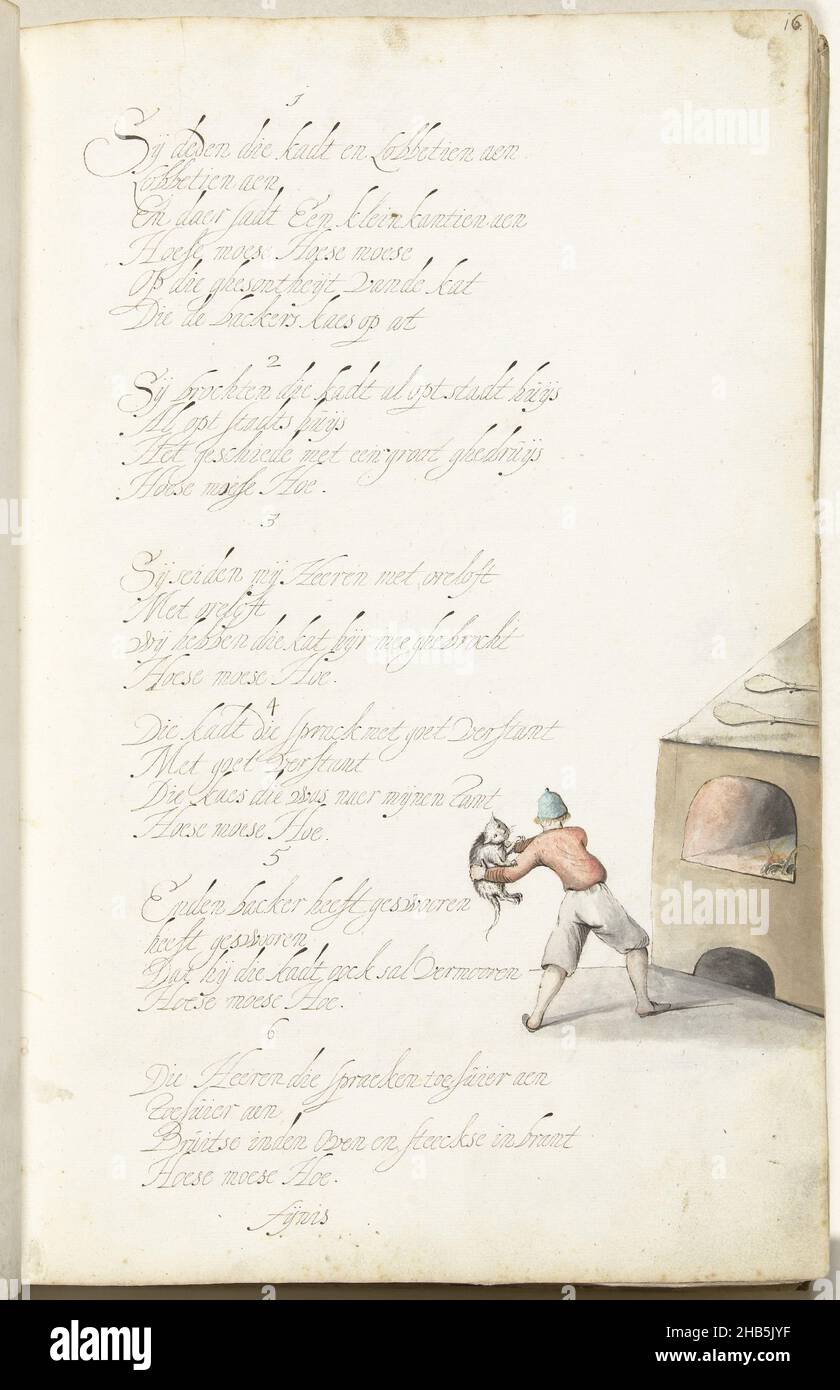 16
1
Sij deden die kadt en Lobbetien aen
Lobbetien aen
En daer sadt Een klein kantien aen
Hoese moese Hoese moese
Op die ghesontheijt vande kat
Die de backers kaes op at
2
Sij brochten die kadt al opt stadt huijs
Al opt stadts huijs
Het geschiede met een groot ghedruijs
Hoese moese Hoe.
3
Sij seiden mij Heeren met oreloft
Met oreloft
wij hebben die kat hijr mee ghebrocht
Hoese moese Hoe.
4
Die kadt die sprack met goet verstant
Met goet verstant
Die kaes die was naer mijnen tant
Hoese moese Hoe.
5
Enden backer heeft geswooren
heeft geswooren
Dat hij die kadt oock sal vermooren
Hoese moese Hoe.
6
Die Heeren die spracken toesuier aen
toesuier aen
Bruitse inden oven en steeckse in brant
Hoese moese Hoe.
fijnis
alamy
alamy
Image ID: 2HB5JYF
www.alamy.com